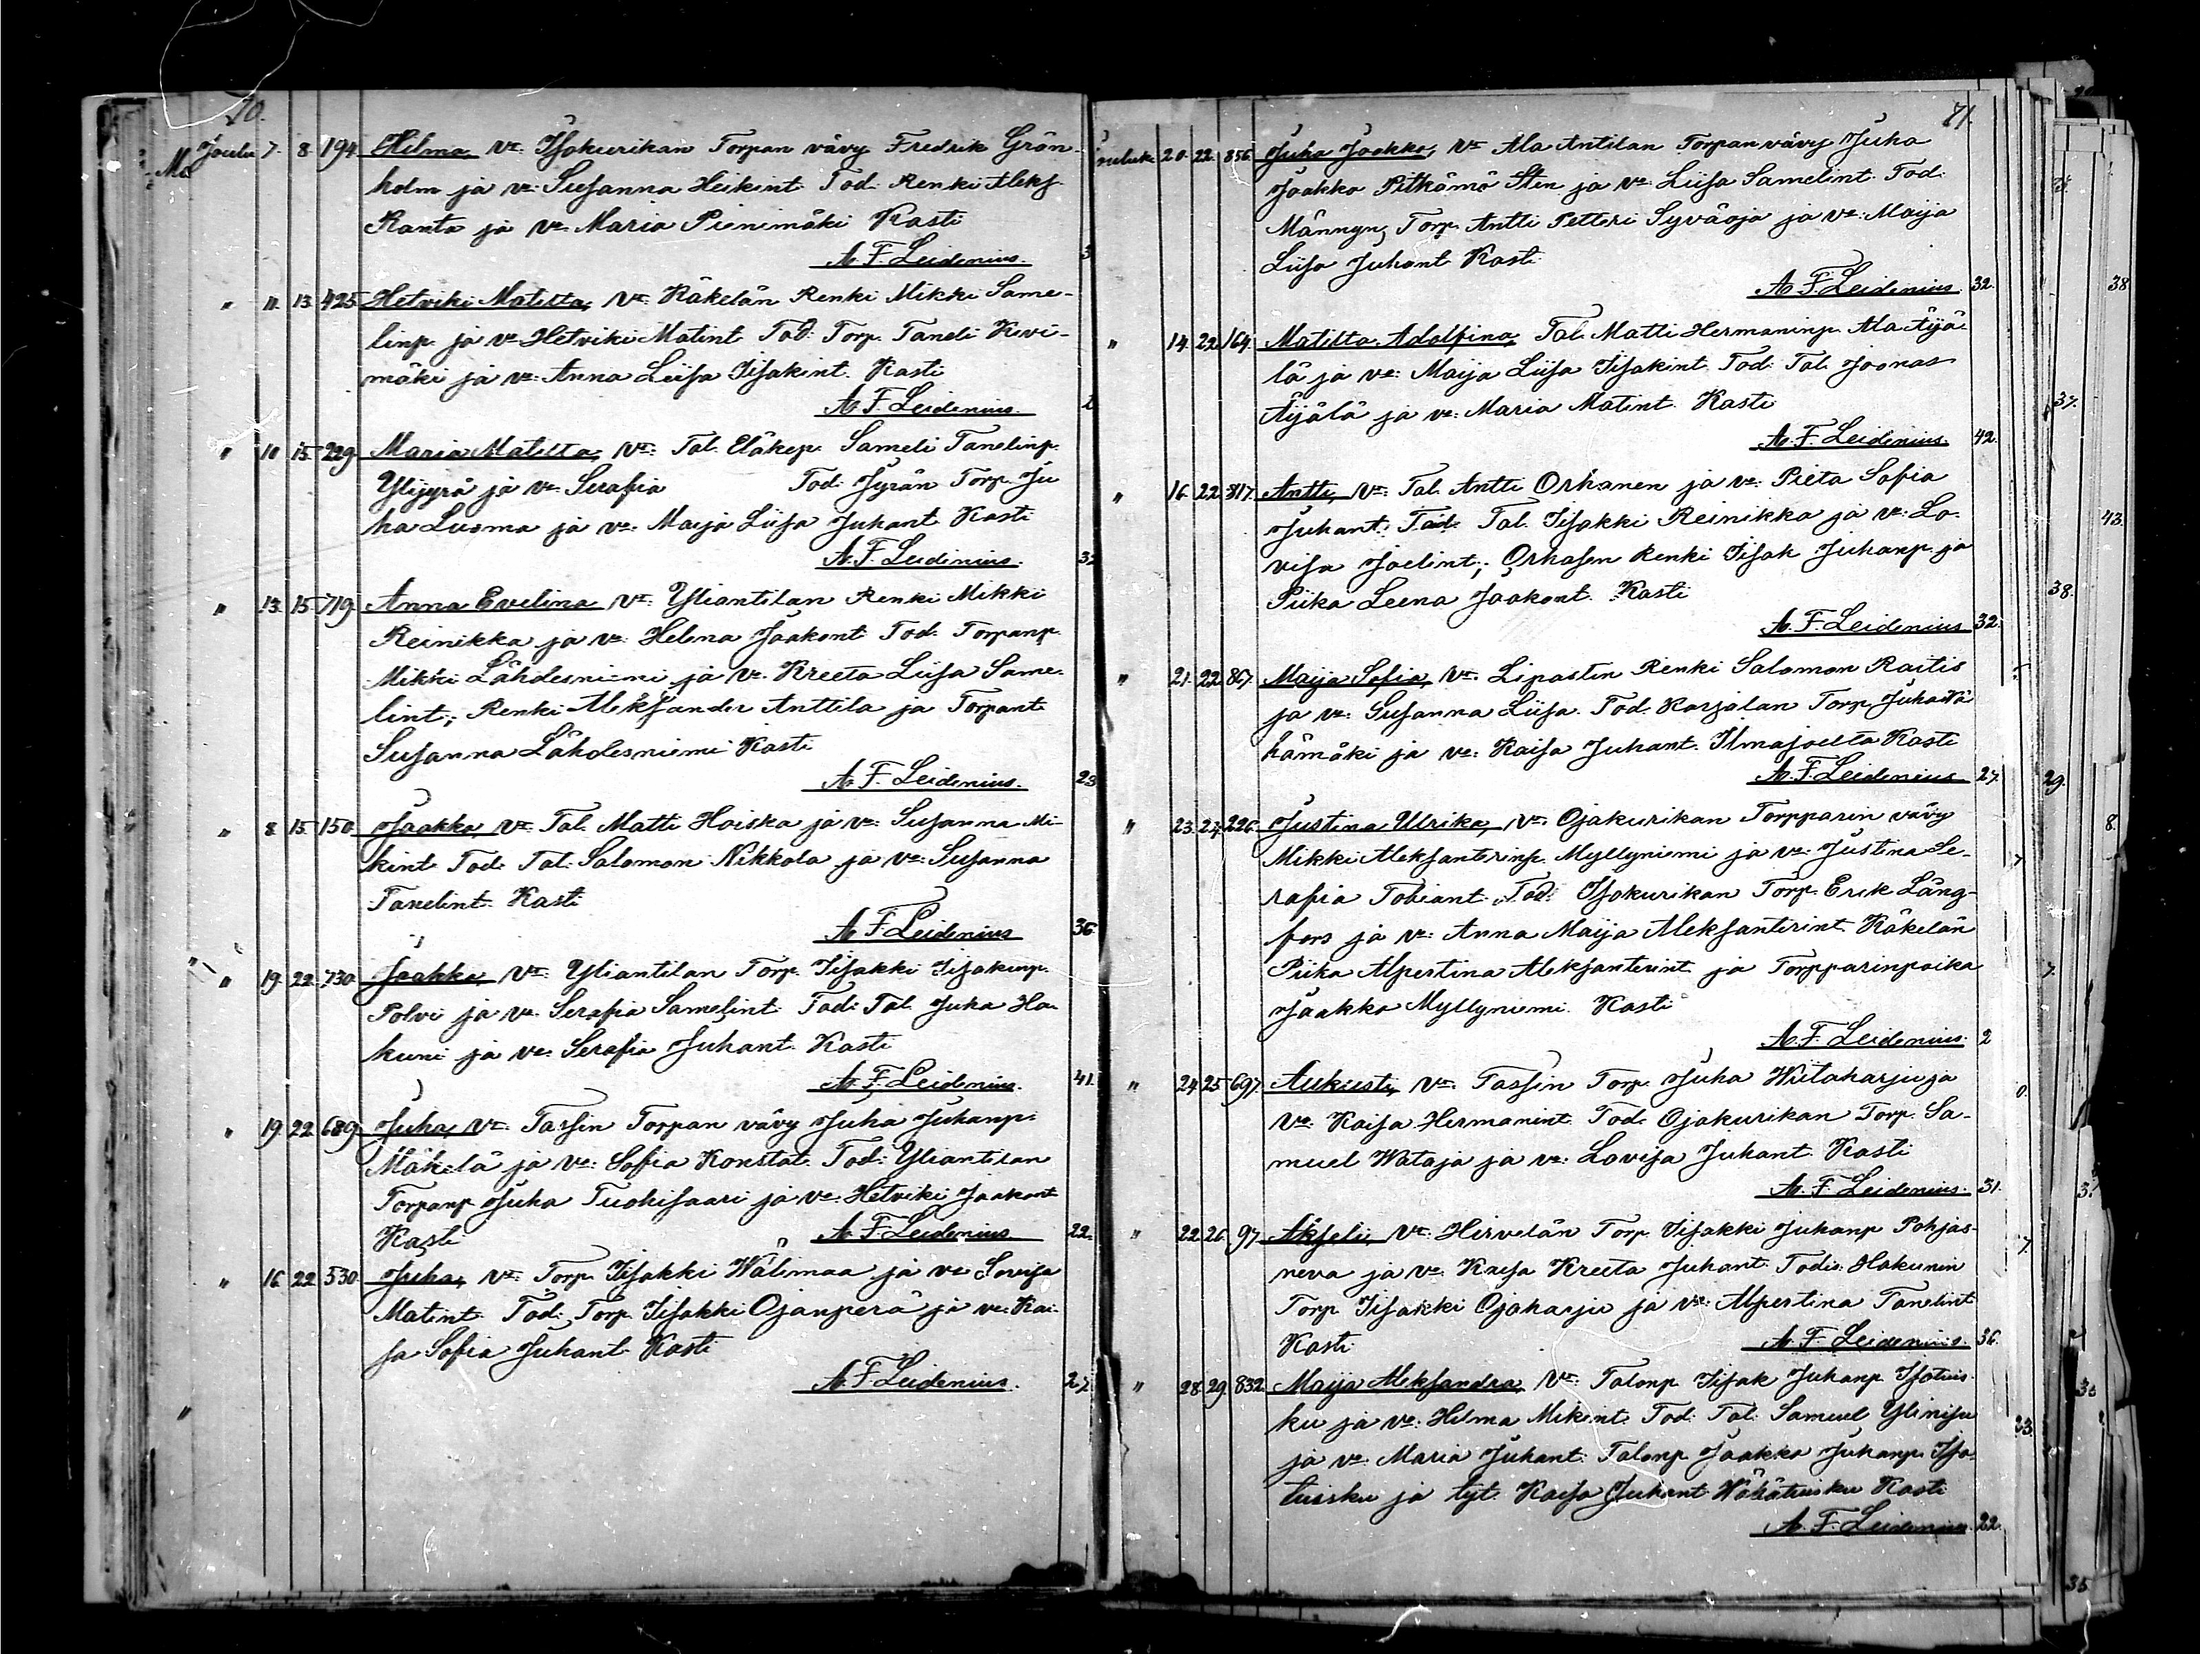 70.
Joulu 7. 8. 194. Hilma, Vt. Isokurikan Torpan vävy Fredrik Grön-
holm ja vo: Susanna Heikint. Tod. Renki Aleks.
Ranta ja vo: Maria Pienimäki Kasti
A. F. Leidenius.
" 11. 13. 425. Hetviki Matilta, Vt. Käkelän Renki Mikki Same-
linp. ja vo: Hetviki Matint. Tod: Torp. Taneli Kivi-
mäki ja vo: Anna Liisa Iisakint. Kasti
A. F. Leidenius.
" 10. 15. 229. Maria Matilta, Vt: Tal. Eläkep. Sameli Tanelinp.
Ylijyrä ja vo: Serafia Tod: Jyrän Torp. Ju
ha Luoma ja vo: Maija Liisa Juhant. Kasti
A. F. Leidenius.
" 13. 15. 719. Anna Evelina Vt: Yliantilan Renki Mikki
Reinikka ja vo: Helena Jaakont. Tod: Torpanp.
Mikki Lähdesniemi ja vo. Kreeta Liisa Same-
lint.; Renki Aleksander Anttila ja Torpant.
Susanna Lähdesniemi Kasti
A. F. Leidenius. 23
" 8. 15. 150. Jaakko Vt: Tal. Matti Hoiska ja vo: Susanna Mi-
kint. Tod: Tal. Salomon Nikkola ja vo: Susanna
Tanelint. Kasti
A. F. Leidenius 36.
" 19. 22. 730. Jaakko, Vt: Yliantilan Torp. Iisakki Iisakinp.
Polvi ja vo: Serafia Samelint. Tod: Tal. Juha Ha-
kuni ja vo: Serafia Juhant. Kasti
A. F. Leidenius. 41.
" 19. 22. 689. Juha, Vt: Tassin Torpan vävy Juha Juhanp.
Mäkelä ja vo: Sofia Konstat. Tod: Yliantilan
Torpanp. Juha Tuohisaari ja vo: Hetviki Jaakont.
Kasti A. F. Leidenius 22.
" 16. 22. 530. Juha, Vt: Torp. Iisakki Wälimaa ja vo: Lovisa
Matint. Tod: Torp. Iisakki Ojanperä ja vo: Kai-
sa Sofia Juhant. Kasti
A. F. Leidenius. 27.
71.
20. 22. 856. Juha Jaakko, Vt: Ala Antilan Torpan vävy Juha
Jaakko Pitkämö Sten ja vo: Liisa Samelint. Tod:
Männyn, Torp. Antti Petteri Syväoja ja vo: Maija
Liisa Juhant. Kasti
A. F. Leidenius. 32.
" 14. 22. 164. Matilta Adolfina, Tal. Matti Hermaninp. Ala Äijä
lä ja vo: Maija Liisa Iisakint. Tod: Tal. Joonas
Äijälä ja vo: Maria Matint. Kasti
A. F. Leidenius. 42.
" 16. 22. 317. Antti, Vt: Tal. Antti Orhanen ja vo: Pieta Sofia
Juhant. Tod: Tal. Iisakki Reinikka ja vo: Lo-
visa Joelint.; Orhasen Renki Iisak Juhanp. ja
Piika Leena Jaakont. Kasti
A. F. Leidenius 32.
" 21. 22. 867. Maija Sofia, Vt: Lipastin Renki Salomon Rastis
ja vo: Susanna Liisa. Tod: Karjalan Torp. Juha Wä
hämäki ja vo: Kaisa Juhant. Ilmajoelta Kasti
A. F. Leidenius 27.
" 23. 24. 226. Justina Ulrika, Vt: Ojakurikan Torpparin vävy
Mikki Aleksanterinp. Myllyniemi ja vo: Justina Se-
rafia Tobiant. Tod: Isokurikan Torp. Erik Lång-
fors ja vo: Anna Maija Aleksanterint. Käkelän
Piika Alpertina Aleksanterint. ja Torpparinpoika
Jaakko Myllyniemi. Kasti
A. F. Leidenius. 2
" 24. 25. 697. Aukusti, Vt: Tassin Torp. Juha Wiitaharju ja
vo: Kaisa Hermanint. Tod: Ojakurikan Torp. Sa-
muel Wataja ja vo: Lovisa Juhant. Kasti
A. F. Leidenius. 31.
" 22. 26. 97. Akseli, Vt: Hirvelän Torp. Iisakki Juhanp. Pohjas-
neva ja vo: Kaisa Kreeta Juhant. Todis: Hakunin
Torp. Iisakki Ojaharju ja vo: Alpertina Tanelint.
Kasti A. F. Leidenius. 36.
" 28. 29. 832. Maija Aleksandra, Vt: Talonp. Iisak Juhanp. Isotuis-
ku ja vo: Hilma Mikint. Tod: Tal. Samuel Ylinisu
ja vo: Maria Juhant. Talonp. Jaakko Juhanp. Iso-
tuisku ja tyt. Kaisa Juhant. Wähätuisku Kasti
A. F. Leidenius. 22.